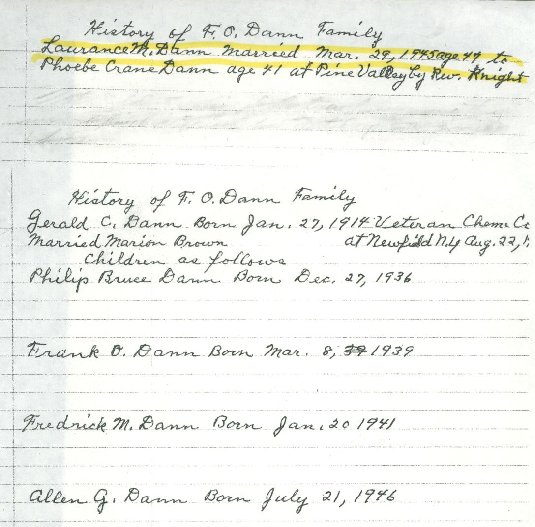 History of F. O. Dann Family
Laurance M. Dann Married Mar. 29, 1945 age 44 to
Phoebe Crane Dann age 41 at Pine Valley by Rev. Knight
History of F. O. Dann Family
Gerald C. Dann Born Jan. 27, 1914 Veteran Chem Co
Married Marion Brown at Newfield N.Y Aug. 22, 
Children as follows
Philip Bruce Dann Born Dec. 27, 1936
Frank O. Dann Born Mar. 8, 1939
Fredrick M. Dann Born Jan. 20 1941
Allen G. Dann Born July 21, 1946